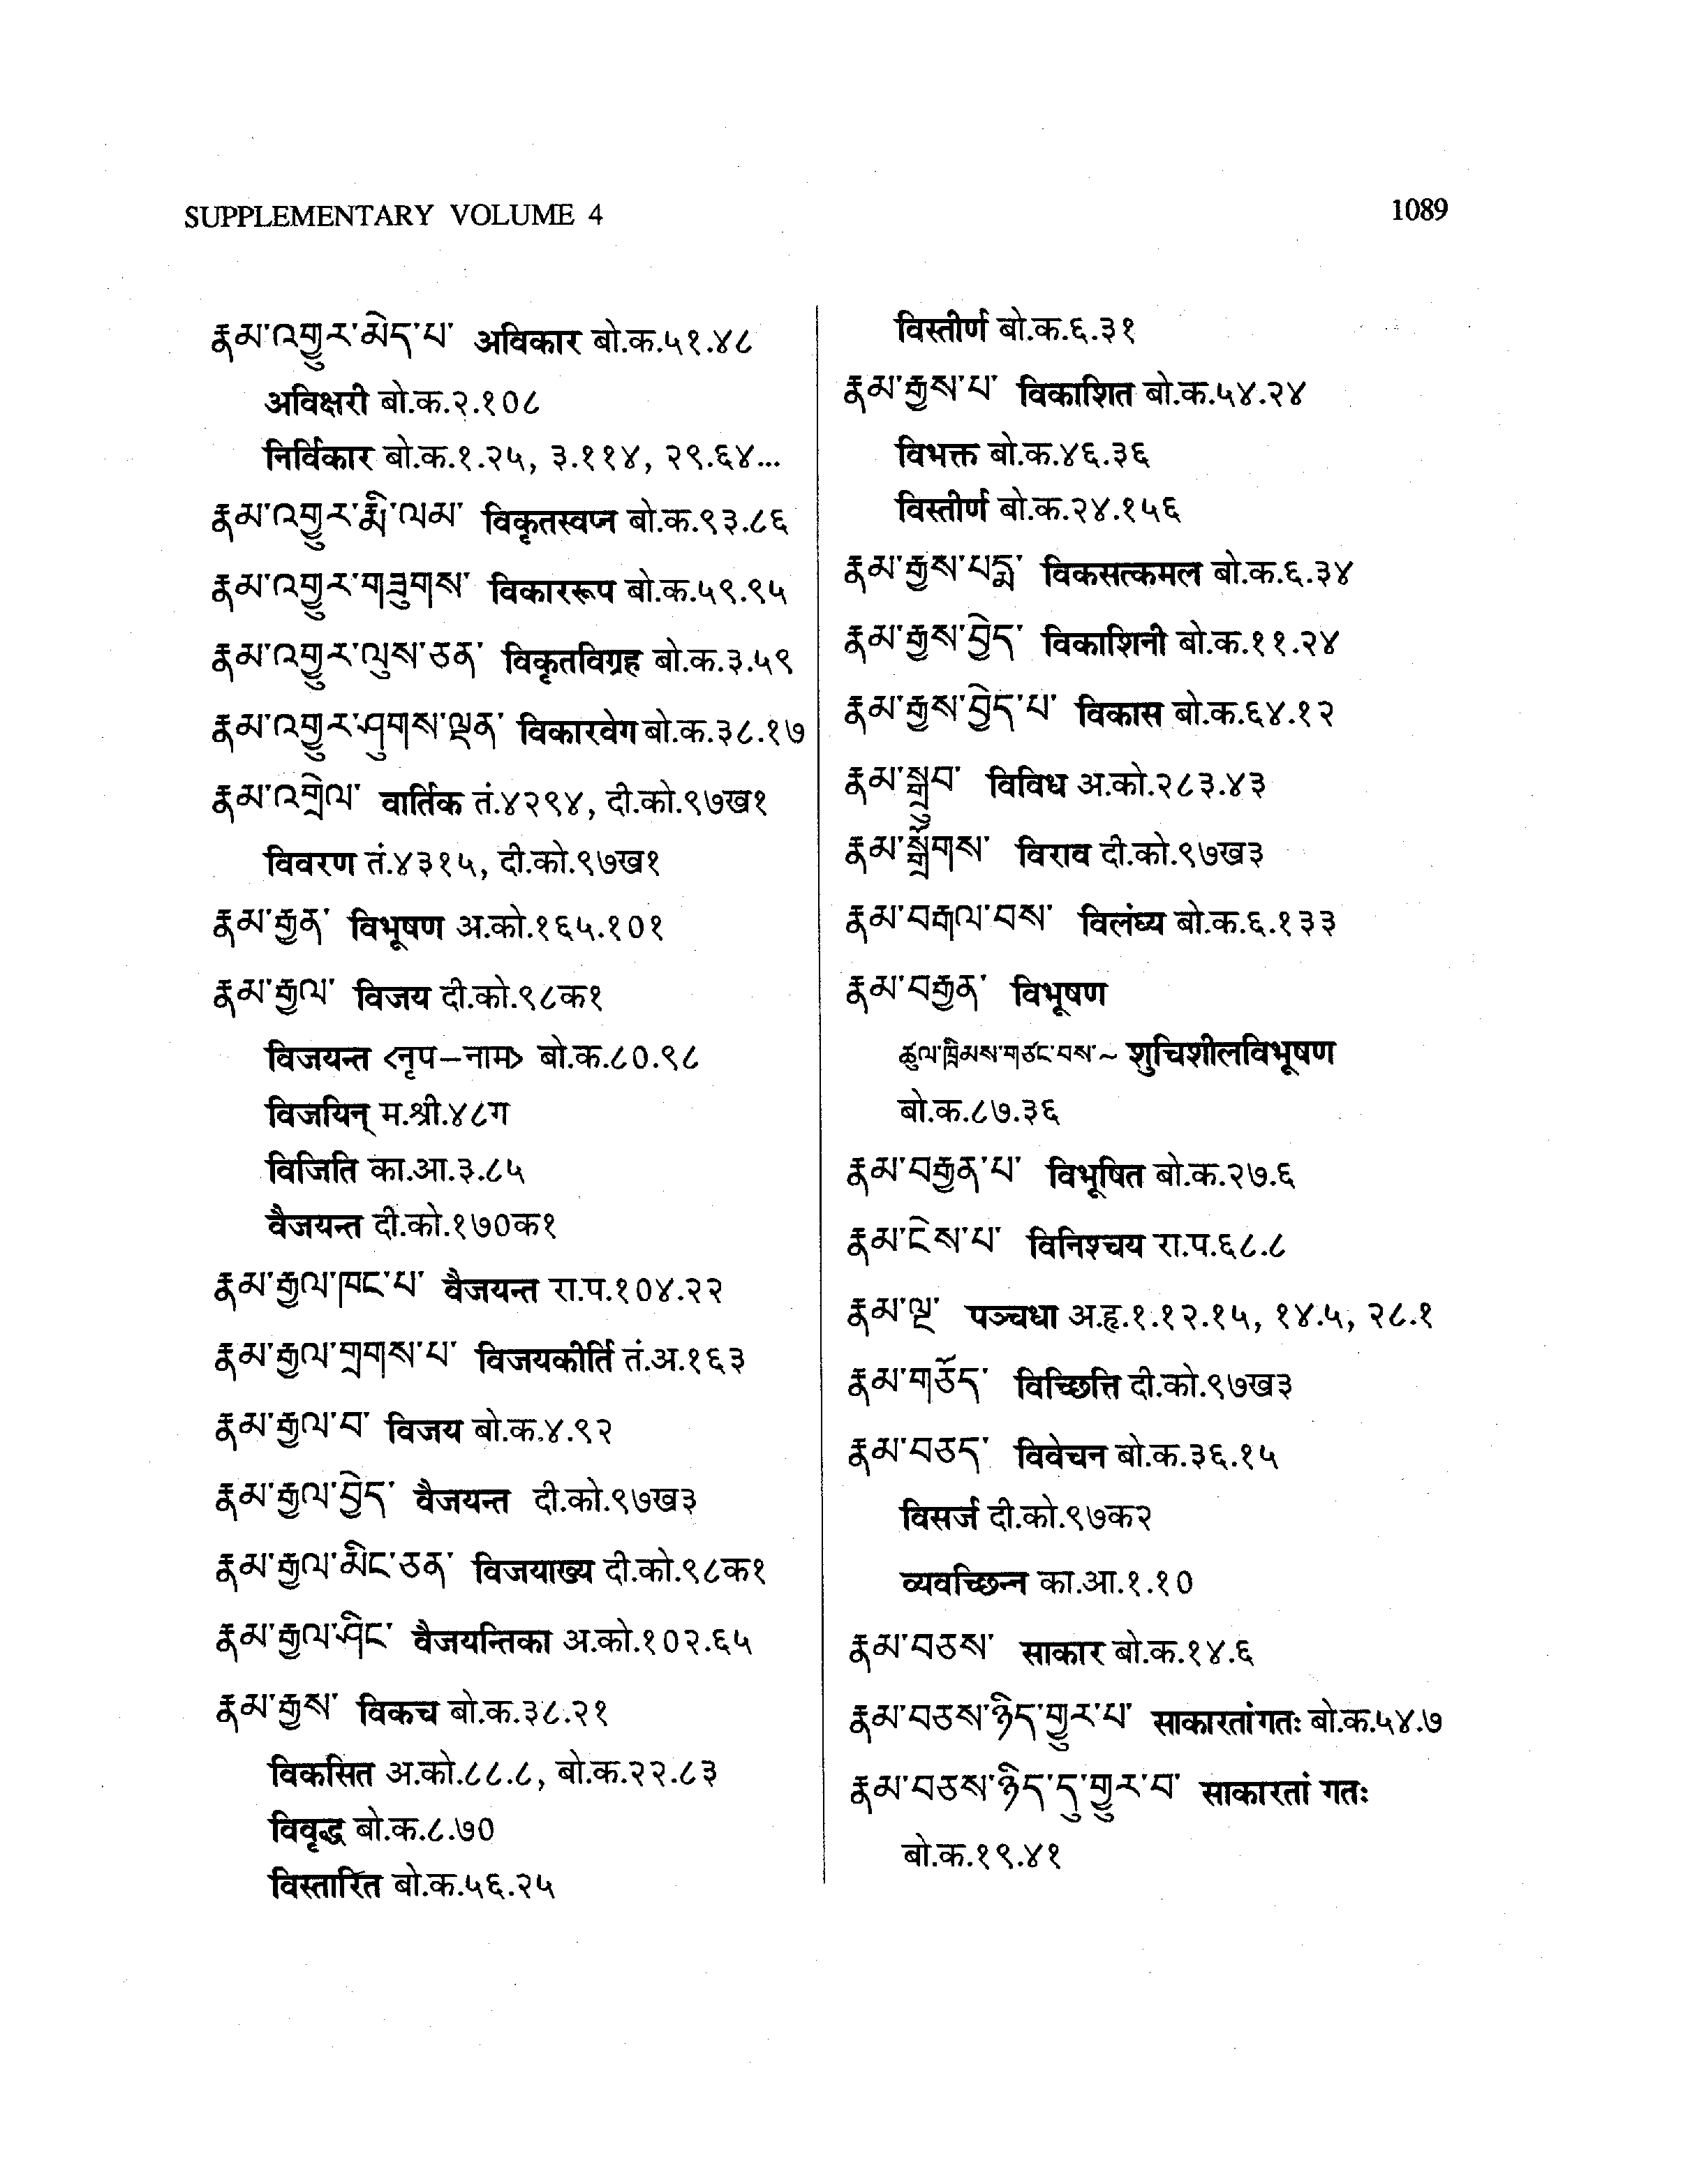 SUPPLEMENTARY VOLUME 4
1089
རྣམ་འགྱུར་མེད་པ་ अविकार बो.क.५१.४८
अविक्षरी बो.क.२.१०८
निर्विकार बो.क.१.२५, ३.११४, २९.६४...
རྣམ་འགྱུར་རྨི་ལམ་ विकृतस्वप्न बो.क.९३.८६
རྣམ་འགྱུར་གཟུགས་ विकाररूप बो.क.५९.९५
རྣམ་འགྱུར་ལུས་ཅན་ विकृतविग्रह बो.क.३.५९
རྣམ་འགྱུར་ཤུགས་ལྡན་ विकारवेग बो.क.३८.१७
རྣམ་འགྲེལ་ वार्तिक तं.४२९४, दी.को.९७ख१
विवरण तं.४३१५, दी.को.९७ख१
རྣམ་རྒྱན་ विभूषण अ.को.१६५.१०१
རྣམ་རྒྱལ་ विजय दी.को.९८क१
विजयन्त <नृप–नाम> बो.क.८०.९८
विजयिन् म.श्री.४८ग
विजिति का.आ.३.८५
वैजयन्त दी.को.१७०क१
རྣམ་རྒྱལ་ཁང་པ་ वैजयन्त रा.प.१०४.२२
རྣམ་རྒྱལ་གྲགས་པ་ विजयकीर्ति तं.अ.१६३
རྣམ་རྒྱལ་བ་ विजय बो.क.४.९२
རྣམ་རྒྱལ་བྱེད་ वैजयन्त दी.को.९७ख३
རྣམ་རྒྱལ་མིང་ཅན་ विजयाख्य दी.को.९८क१
རྣམ་རྒྱལ་ཤིང་ वैजयन्तिका अ.को.१०२.६५
རྣམ་རྒྱས་ विकच बो.क.३८.२१
विकसित अ.को.८८.८, बो.क.२२.८३
विवृद्ध बो.क.८.७०
विस्तारित बो.क.५६.२५
विस्तीर्ण बो.क.६.३१
རྣམ་རྒྱས་པ་ विकाशित बो.क.५४.२४
विभक्त बो.क.४६.३६
विस्तीर्ण बो.क.२४.१५६
རྣམ་རྒྱས་པདྨ་ विकसत्कमल बो.क.६.३४
རྣམ་རྒྱས་བྱེད་ विकाशिनी बो.क.११.२४
རྣམ་རྒྱས་བྱེད་པ་ विकास बो.क.६४.१२
རྣམ་སྒྲུབ་ विविध अ.को.२८३.४३
རྣམ་སྒྲོགས་ विराव दी.को.९७ख३
རྣམ་བརྒལ་བས་ विलंघ्य बो.क.६.१३३
རྣམ་བརྒྱན་ विभूषण
ཚུལ་ཁྲིམས་གཙང་བས་~ शुचिशीलविभूषण
बो.क.८७.३६
རྣམ་བརྒྱན་པ་ विभूषित बो.क.२७.६
རྣམ་ངེས་པ་ विनिश्चय रा.प.६८.८
རྣམ་ལྔ་ पञ्चधा अ.हृ.१.१२.१५, १४.५, २८.१
རྣམ་གཅོད་ विच्छित्ति दी.को.९७ख३
རྣམ་བཅད་ विवेचन बो.क.३६.१५
विसर्ज दी.को.९७क२
व्यवच्छिन्न का.आ.१.१०
རྣམ་བཅས་ साकार बो.क.१४.६
རྣམ་བཅས་ཉིད་གྱུར་པ་ साकारतांगतः बो.क.५४.७
རྣམ་བཅས་ཉིད་དུ་གྱུར་བ་ साकारतां गतः
बो.क.१९.४१